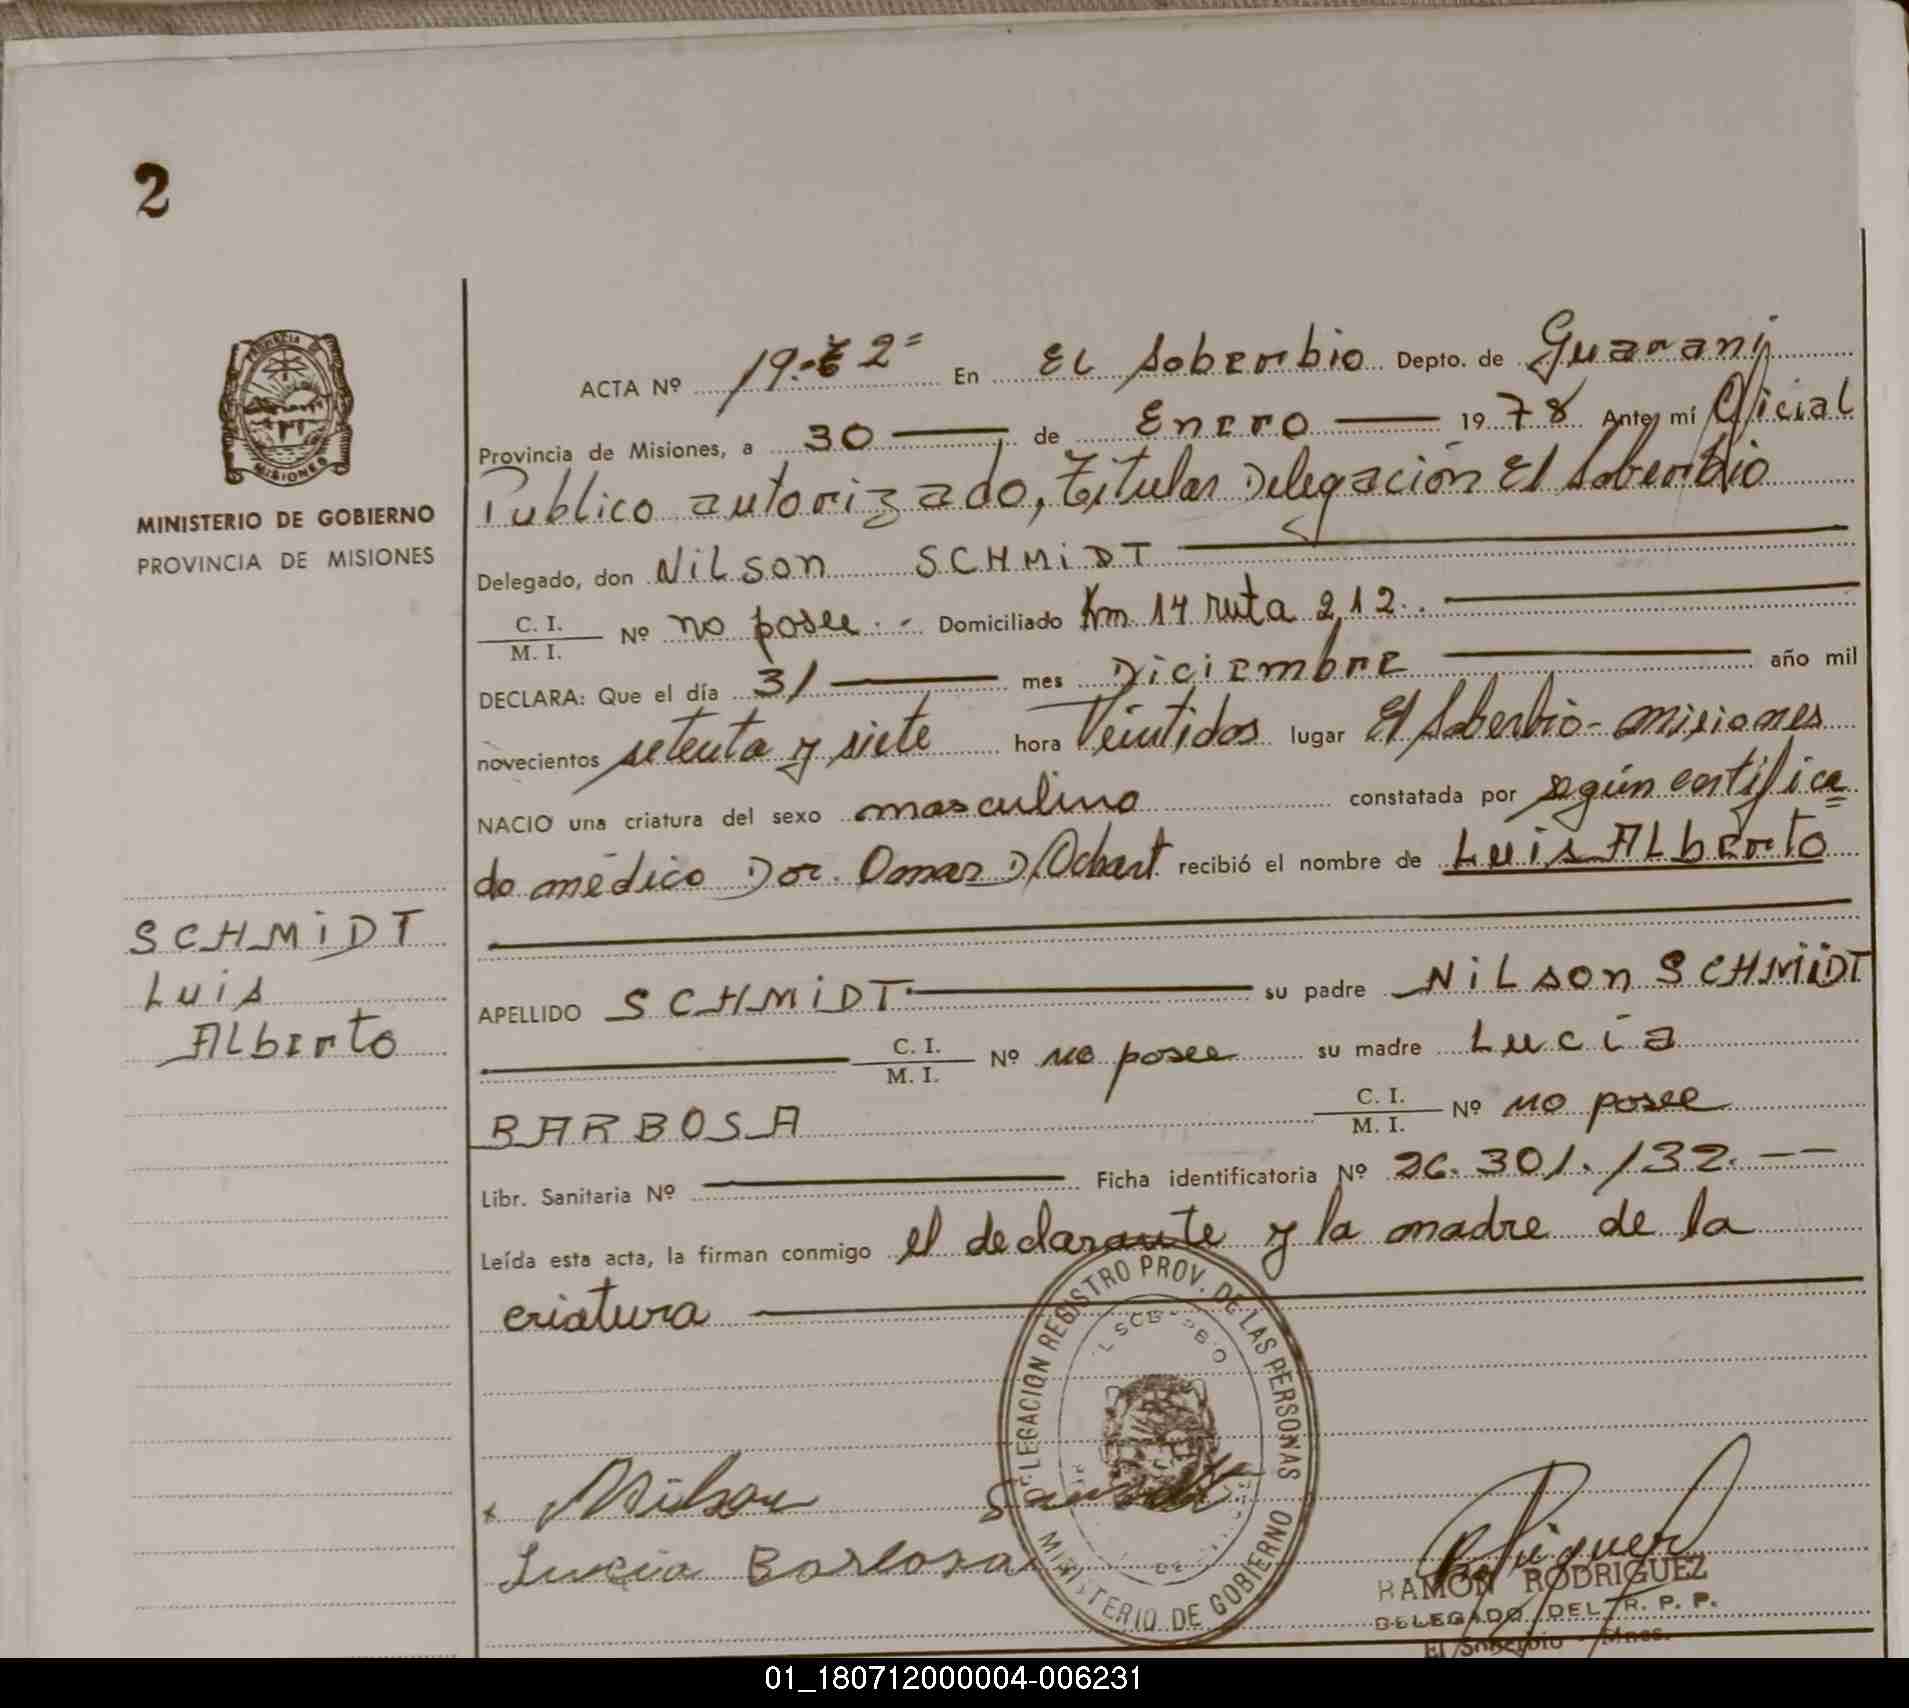 2
PROVINCIA DE
MISIONES
MINISTERIO DE GOBIERNO
PROVINCIA DE MISIONES
SCHMIDT
Luis
Alberto
ACTA Nº 19.- 2= En EL Soberbio Depto. de Guarani
Provincia de Misiones, a 30 de Enero 19 78 Ante mí Oficial
Publico autorizado, titular Delegación El Soberbio
Delegado, don Nilson SCHMiDT
C. I.
M. I. Nº no posee.- Domiciliado Km 14 ruta 212.
DECLARA: Que el día 31 mes Diciembre año mil
novecientos setenta y siete hora Veintidos lugar El Soberbio-misiones
NACIO una criatura del sexo masculino constatada por según certifica
do médico Dor. Omar D. recibió el nombre de Luis Alberto
APELLIDO SCHMiDT su padre Nilson SCHMiDT
C. I.
M. I. Nº no posee su madre Lucía
BARBOSA C. I.
M. I. Nº no posee
Libr. Sanitaria Nº Ficha identificatoria Nº 26.301.132.--
Leída esta acta, la firman conmigo el declarante y la madre de la
criatura
DELEGACION REGISTRO PROV. DE LAS PERSONAS
MINISTERIO DE GOBIERNO
Nilson
Lucia Barbosa
RAMON RODRIGUEZ
DELEGADO DEL R. P. P.
El Soberbio - Mnes.
01_180712000004-006231